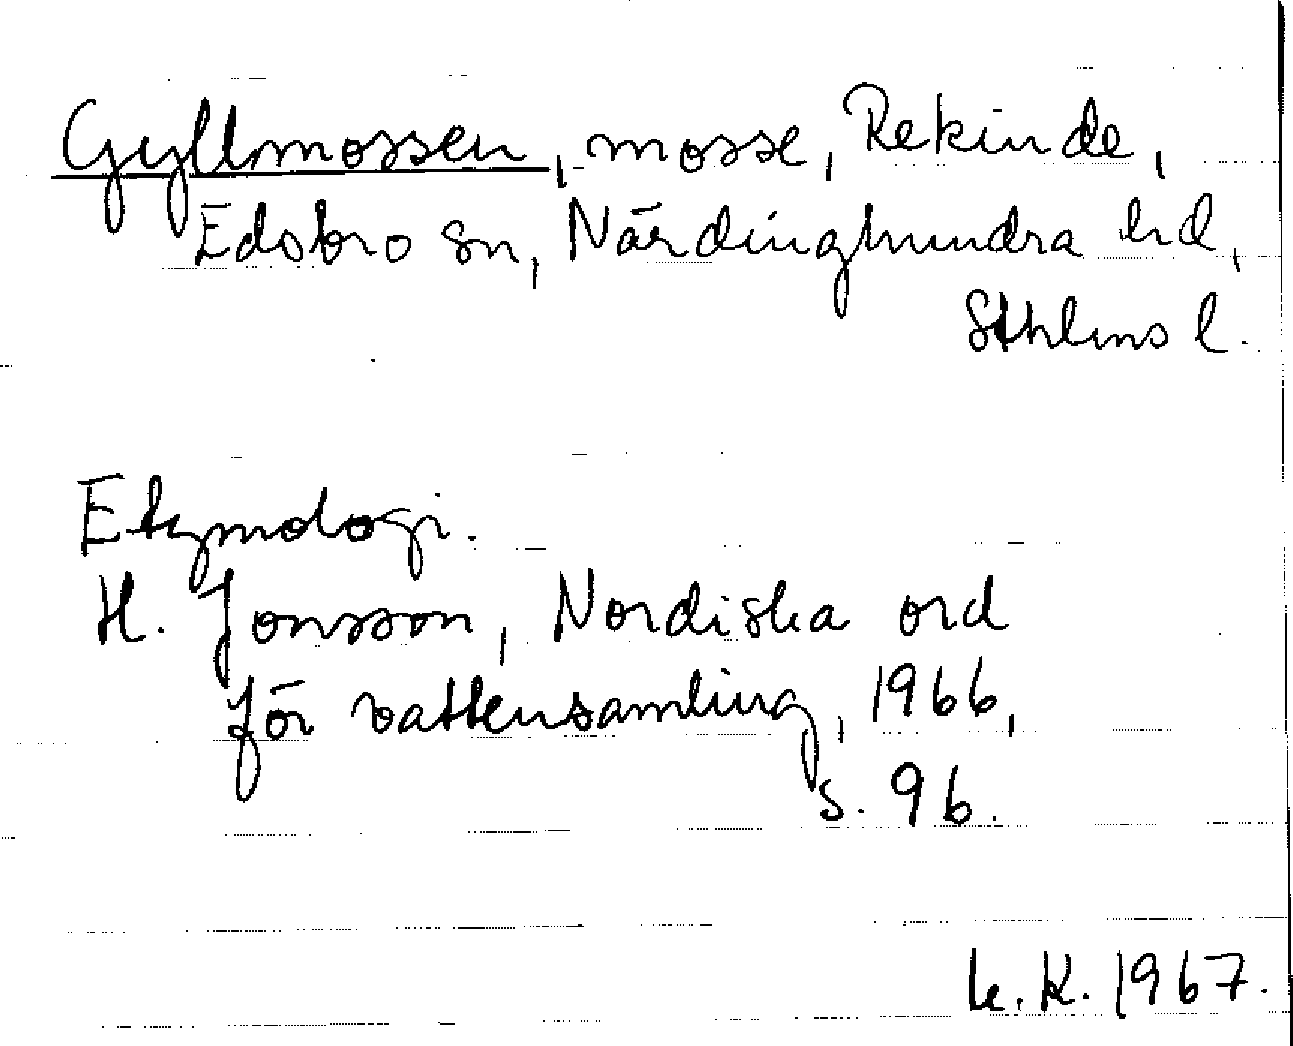 Gyllmossen, mosse, Rekinde,
Edsbro sn, Närdinghundra hd,
Sthlms l.
Etymologi.
H. Jonsson, Nordiska ord
för vattensamling, 1966,
s. 96.
K. 1967.